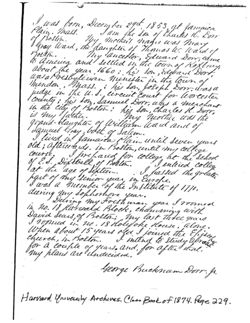 I was born, December 29th 1853, at Jamaica
Plain, Mass. I am the son of Charles H. Dorr
of Boston. My mother's maiden name was Mary
Gray Ward, the daughter of Thomas W. Ward of
Boston. My ancestor, Edward Dorr, came
to America and settled in the town of Roxbury
about the year 1660; his son, Edward Dorr,
was Presbyterian Minister in the town of
Mendon, Mass.; his son Joseph Dorr, was a
judge in the Circuit Court for Worcester
County; his son, Samuel Dorr, was a merchant
in the city of Boston; his son, Charles H. Dorr,
is my father. My mother was the
grand-daughter of William Ward and of
Samuel Gray, both of Salem.
I lived in Jamaica Plain until seven years
old; afterwards in Boston, until my college
course. I prepared for college at the school
of E. S. Dixwell of Boston. I entered college
at the age of sixteen. I passed the greater
part of my senior year in Europe.
I was a member of the Institute of 1770
during my Sophomore year.
During my Freshman year I roomed
in No. Holyoke Block, chumming with
David Sears of Boston. My last three years
I roomed in No. 18 Holyoke House, alone.
When about 15 years old I joined the
church, in Boston. I intend to study abroad
for a couple of years, and, for after that
my plans are undecided.
George Buckman Dorr, Jr.
Harvard University Archives. Class Book of 1874. Page 229.